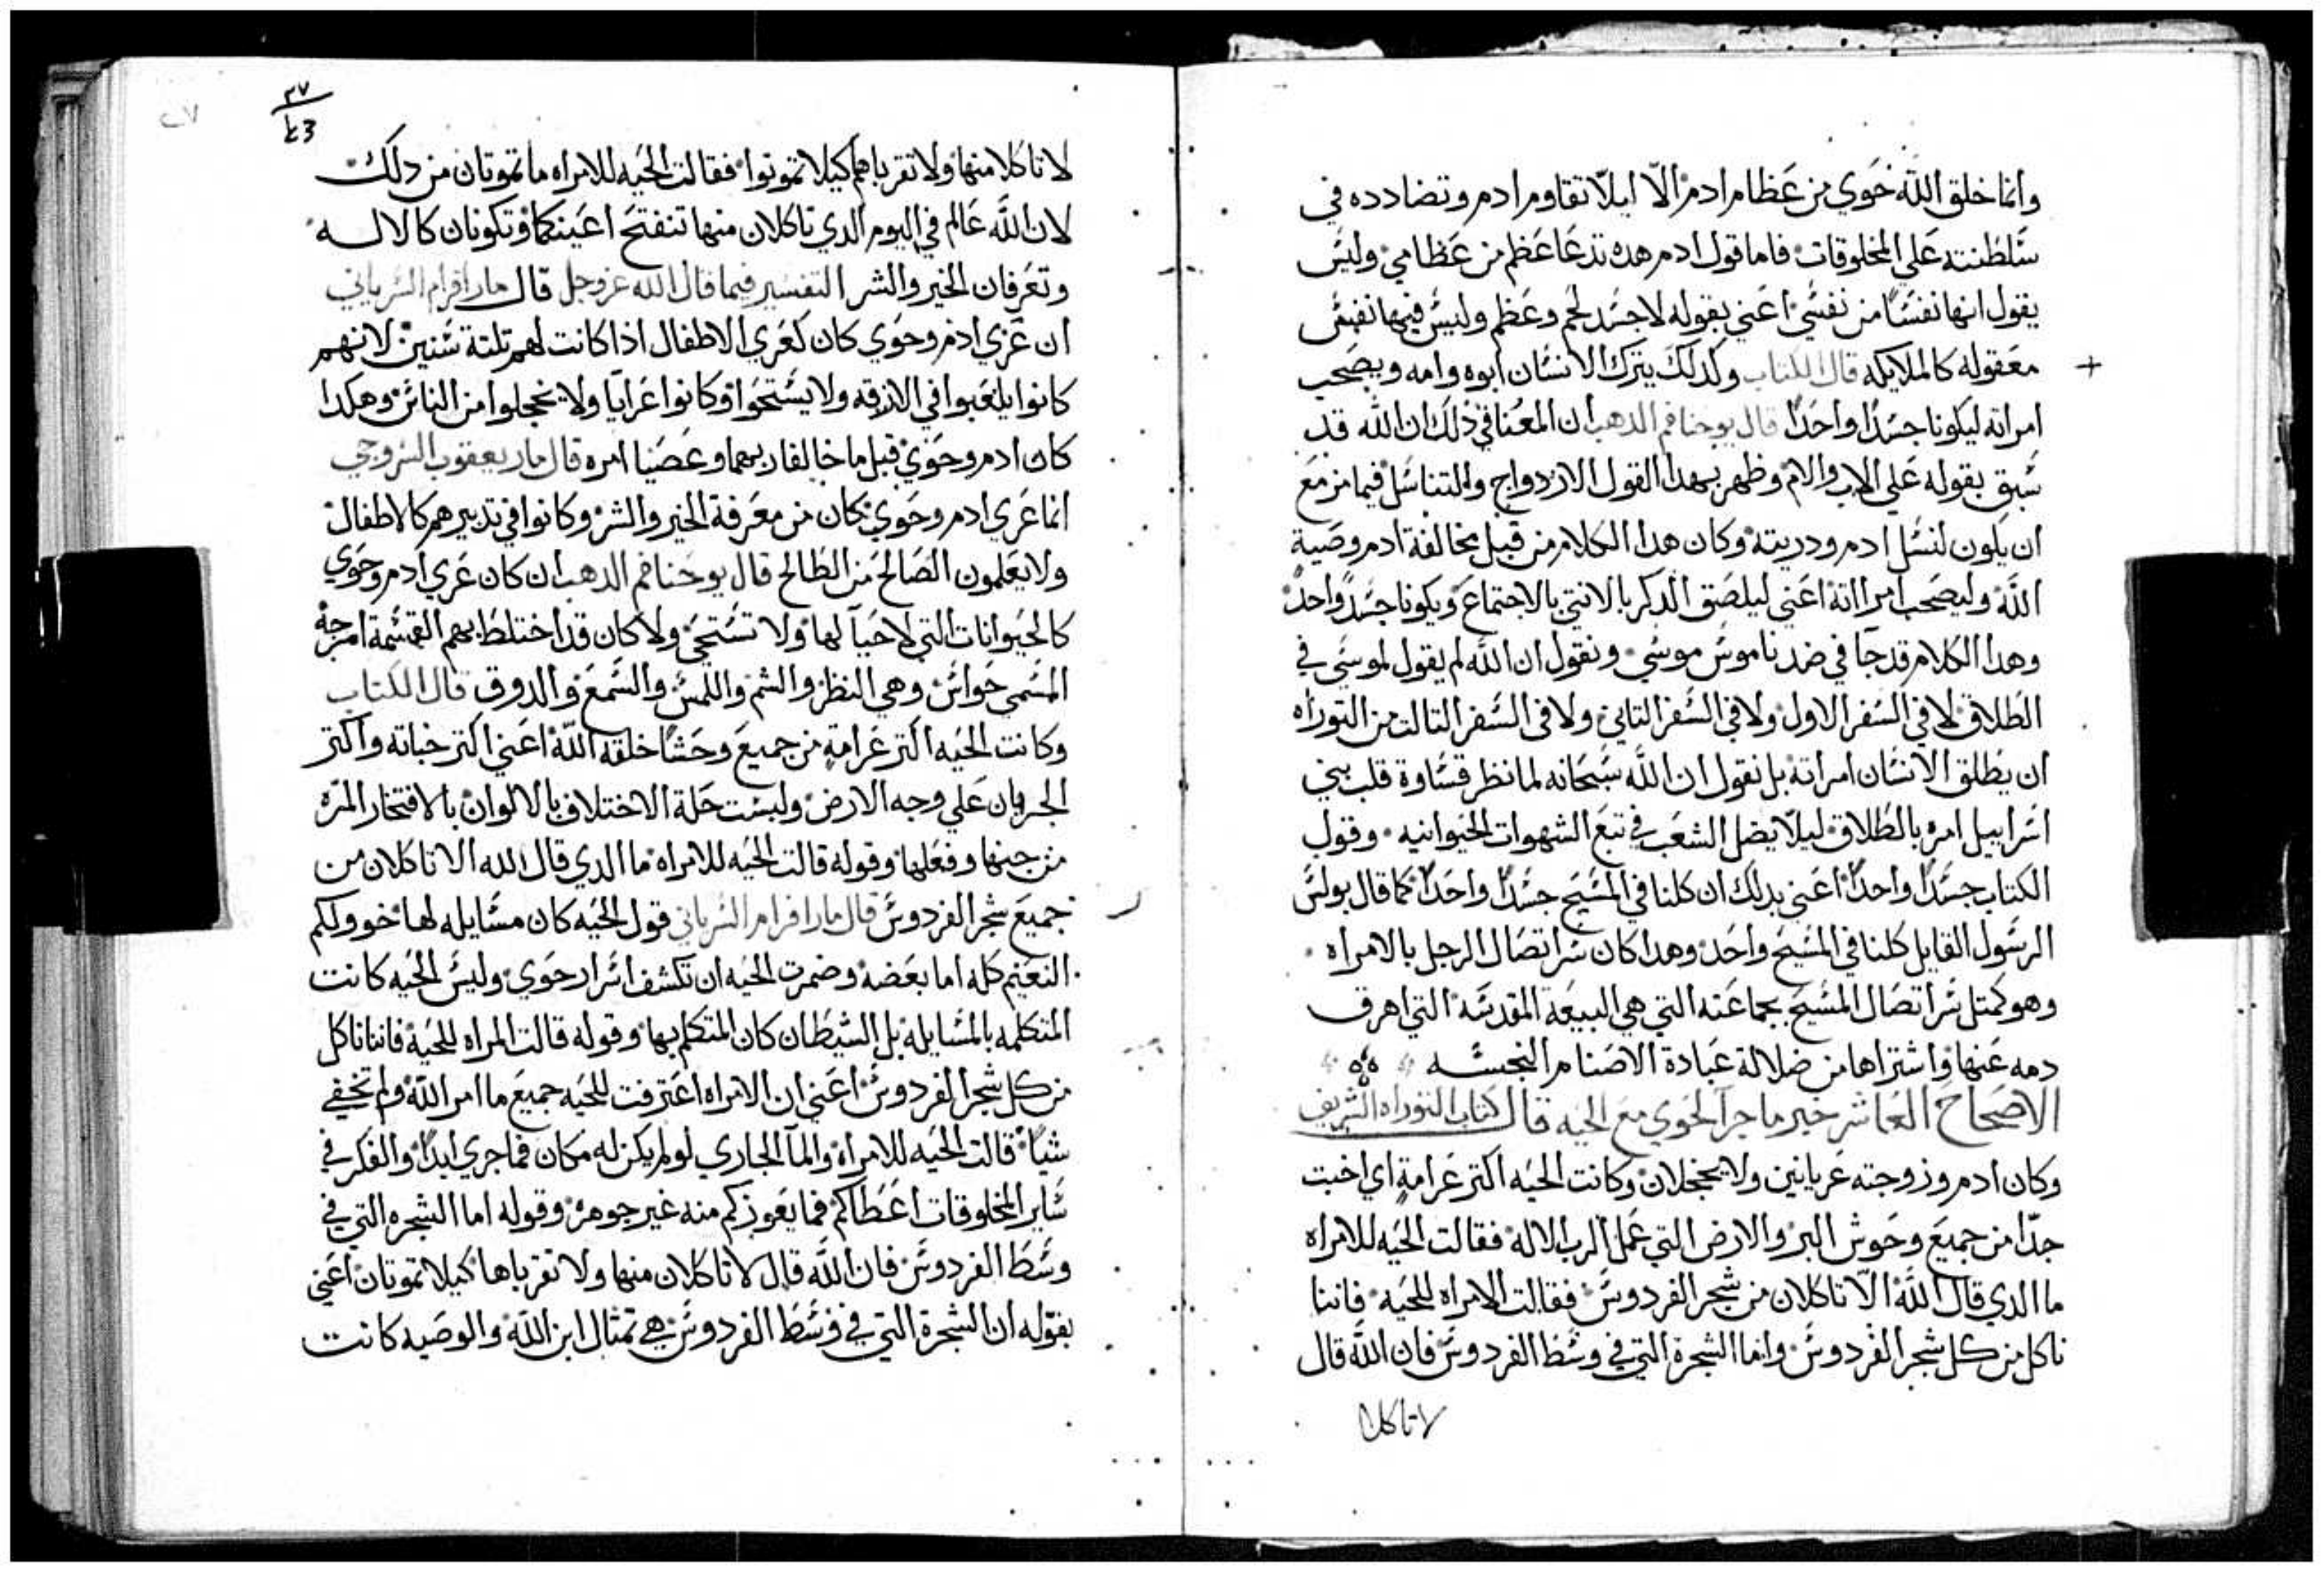 وانما خلق الله حوي من عظام ادم الا ليلا تقاوم ادم وتضادده في
سلطنته علي المخلوقات فاما قول ادم هده تدعا عظم من عظامي وليس
يقول انها نفسا من نفسي اعني بقوله لاجسد لحم وعظم وليس فيها نفس
معقوله كالملايكه قال الكتاب ولدلك يترك الانسان ابوه وامه ويصحب
امراته ليكونا جسدا واحدا قال يوحنا فم الدهب ان المعنا في دلك ان الله قد
سبق بقوله علي الاب والام وظهر بهدا القول الازدواج والتناسل فيما مزمع
ان يكون لنسل ادم ودريته وكان هدا الكلام من قبل مخالفة ادم وصية
الله وليصحب امراته اعني ليلصق الدكر بالانتي بالاجتماع ويكونا جسد واحد
وهدا الكلام قد جا في ضد ناموس موسي ونقول ان الله لم يقول لموسي في
الطلاق لا في السفر الاول ولا في السفر التاني ولا في السفر التالت من التوراه
ان يطلق الانسان امراته بل نقول ان الله سبحانه لما نظر قساوة قلب بني
اسراييل امره بالطلاق ليلا يضل الشعب في تبع الشهوات الحيوانيه وقول
الكتاب جسدا واحدا اعني بدلك ان كلنا في المسيح جسدا واحدا كما قال بولس
الرسول القايل كلنا في المسيح واحد وهدا كان سر اتصال الرجل بالامراه
وهو كمتل سر اتصال المسيح بجماعته التي هي البيعة المقدسة التي اهرق
دمه عنها واشتراها من ضلالة عبادة الاصنام النجسه
الاصحاح العاشر خبر ما جرا لحوي مع الحيه قال كتاب التوراه الشريف
وكان ادم وزوجته عريانين ولا يخجلان وكانت الحيه اكتر غرامة اي اخبت
جدا من جميع وحوش البر والارض التي عمل الرب الاله فقالت الحيه للامراه
ما الدي قال الله الا تاكلان من شجر الفردوس فقالت الامراه للحيه فاننا
ناكل من كل شجر الفردوس واما الشجرة التي في وسط الفردوس فان الله قال
لا تاكلا
٢٧
٢٧
لا تاكلا منها ولا تقرباهم كيلا تموتوا فقالت الحيه للامراه ما تموتان من دلك
لان الله عالم في اليوم الدي تاكلان منها تنفتح اعينكما وتكونان كالالسه
وتعرفان الخير والشر التفسير فيما قال الله عز وجل قال مار افرام السرياني
ان عري ادم وحوي كان كعري الاطفال ادا كانت لهم تلتة سنين لانهم
كانوا يلعبوا في الازقه ولا يستحوا وكانوا عرايا ولا يخجلوا من الناس وهكدا
كان ادم وحوي قبل ما خالفا ربهما وعصيا امره قال مار يعقوب السروجي
انما عري ادم وحوي كان من معرفة الخير والشر وكانوا في تدبيرهم كالاطفال
ولا يعلمون الصالح من الطالح قال يوحنا فم الدهب ان كان عري ادم وحوي
كالحيوانات التي لا حيا لها ولا تستحي ولا كان قد اختلط بهم القسمة امزجة
المسمي حواس وهي النظر والشم واللمس والسمع والدوق قال الكتاب
وكانت الحيه اكتر غرامة من جميع وحشا خلقه الله اعني اكتر خباته واكتر
الجريان علي وجه الارض ولبست حلة الاختلاف بالالوان بالافتخار المره
من جنها وفعلها وقوله قالت الحيه للامراه ما الدي قال الله الا تاكلان من
جميع شجر الفردوس قال مار افرام السرياني قول الحيه كان مسايله لها خوولكم
النعيم كله اما بعضه وضمرت الحيه ان تكشف اسرار حوي وليس الحيه كانت
المتكلمه بالمسايله بل الشيطان كان المتكلم بها وقوله قالت المراه للحية فاننا ناكل
من كل شجر الفردوس اعني ان الامراه اعترفت للحيه جميع ما امر الله ولم تخفي
شيا قالت الحيه للامراه والما الجاري لو لم يكن له مكان فما جري ابدا والفكر في
ساير المخلوقات اعطاكم فما يعوزكم منه غير جوهره وقوله اما الشجره التي في
وسط الفردوس فان الله قال لا تاكلان منها ولا تقرباها كيلا تموتان اعني
بقوله ان الشجرة التي في وسط الفردوس هي تمثال ابن الله والوصيه كانت